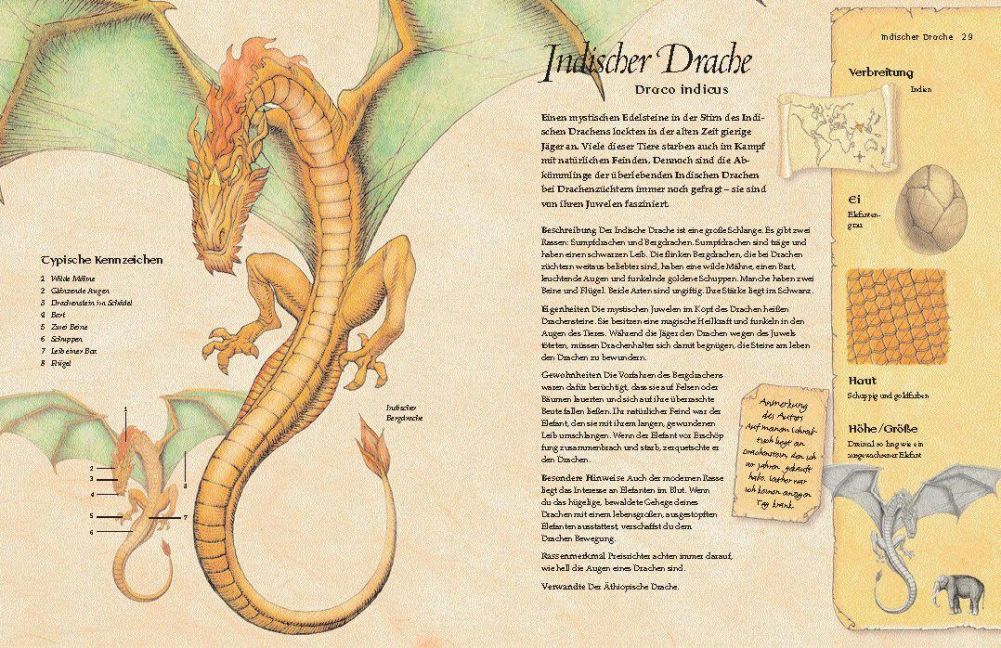 Typische Kennzeichen
1 Wilde Mähne
2 Glänzende Augen
3 Drachenstein im Schädel
4 Bart
5 Zwei Beine
6 Schuppen
7 Leib einer Boa
8 Flügel
1
2
3
4
5
6
7
8
Indischer
Bergdrache
Indischer Drache
Draco indicus
Einen mystischen Edelsteine in der Stirn des Indi-
schen Drachens lockten in der alten Zeit gierige
Jäger an. Viele dieser Tiere starben auch im Kampf
mit natürlichen Feinden. Dennoch sind die Ab-
kömmlinge der überlebenden Indischen Drachen
bei Drachenzüchtern immer noch gefragt – sie sind
von ihren Juwelen fasziniert.
Beschreibung Der Indische Drache ist eine große Schlange. Es gibt zwei
Rassen: Sumpfdrachen und Bergdrachen. Sumpfdrachen sind träge und
haben einen schwarzen Leib. Die flinken Bergdrachen, die bei Drachen
züchtern weitaus beliebter sind, haben eine wilde Mähne, einen Bart,
leuchtende Augen und funkelnde goldene Schuppen. Manche haben zwei
Beine und Flügel. Beide Arten sind ungiftig. Ihre Stärke liegt im Schwanz.
Eigenheiten Die mystischen Juwelen im Kopf des Drachen heißen
Drachensteine. Sie besitzen eine magische Heilkraft und funkeln in den
Augen des Tieres. Während die Jäger den Drachen wegen des Juwels
töteten, müssen Drachenhalter sich damit begnügen, die Steine am leben
den Drachen zu bewundern.
Gewohnheiten Die Vorfahren des Bergdrachens
waren dafür berüchtigt, dass sie auf Felsen oder
Bäumen lauerten und sich auf ihre überraschte
Beute fallen ließen. Ihr natürlicher Feind war der
Elefant, den sie mit ihrem langen, gewundenen
Leib umschlangen. Wenn der Elefant vor Erschöp
fung zusammenbrach und starb, zerquetschte er
den Drachen.
Besondere Hinweise Auch der modernen Rasse
liegt das Interesse an Elefanten im Blut. Wenn
du das hügelige, bewaldete Gehege deines
Drachen mit einem lebensgroßen, ausgestopften
Elefanten ausstattest, verschaffst du dem
Drachen Bewegung.
Rassenmerkmal Preisrichter achten immer darauf,
wie hell die Augen eines Drachen sind.
Verwandte Der Äthiopische Drache.
Anmerkung
des Autors
Auf meinem Schreib-
tisch liegt ein
Drachenstein, den ich
vor Jahren gekauft
habe. Seither war
ich keinen einzigen
Tag krank.
Indischer Drache 29
Verbreitung
Indien
Ei
Elefanten-
grau
Haut
Schuppig und goldfarben
Höhe/Größe
Dreimal so lang wie ein
ausgewachsener Elefant